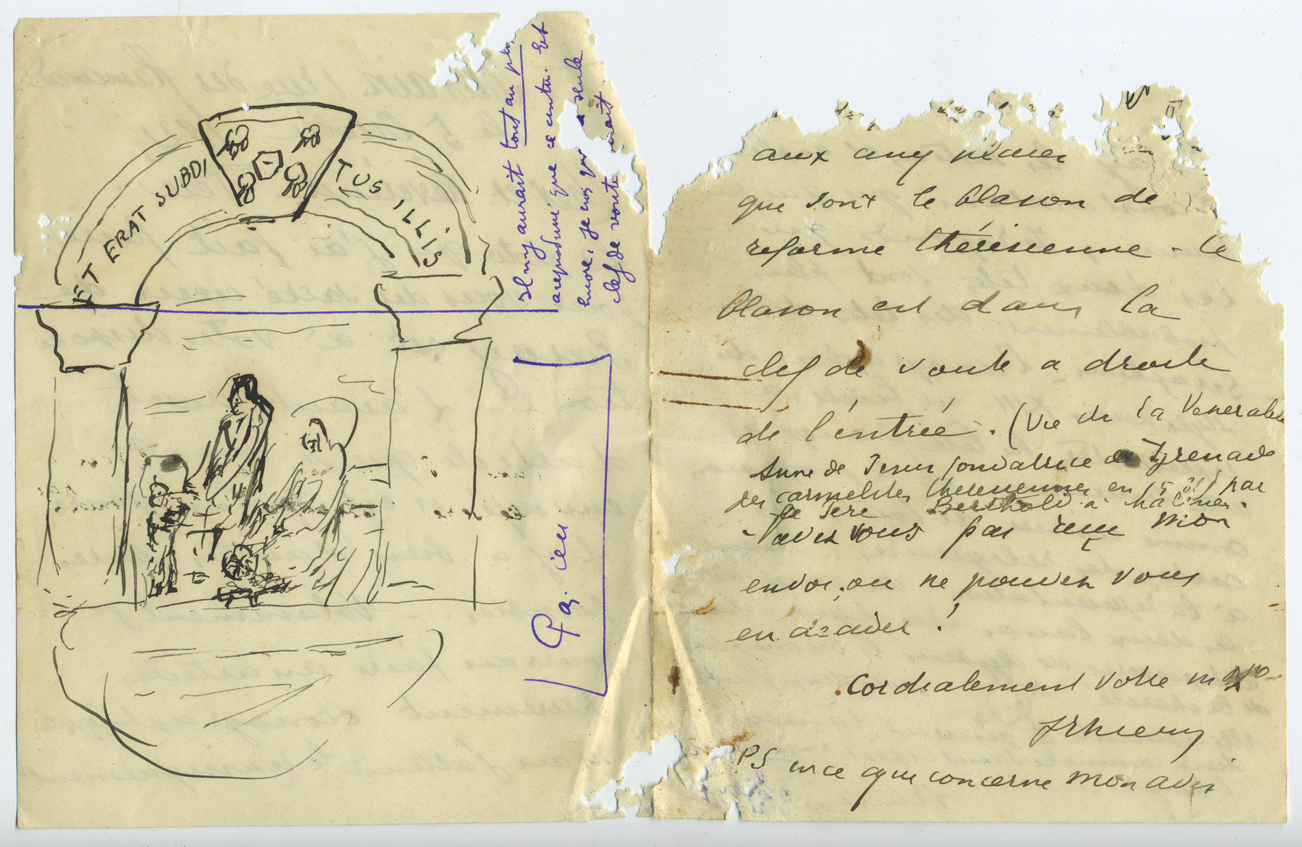 ET ERAT SUBDI
TUS ILLIS
Il n'y aurait tout au plus
à reproduire que ce cintre. Et
encore, je crois que seule
clef de voute
aux cinq
que sont le blason de
reforme thérésienne. Le
blason est dans la
clef de voute a droite
de l'entrée. (Vie de la Venerable
Anne de Jesus fondatrice Grenade
des carmelites theresiennes en par
le Père Berthold a
N'avez vous pas reçu mon
envoi, ou ne pouvez vous
en
Cordialement votre
PS en ce que concerne mon avis